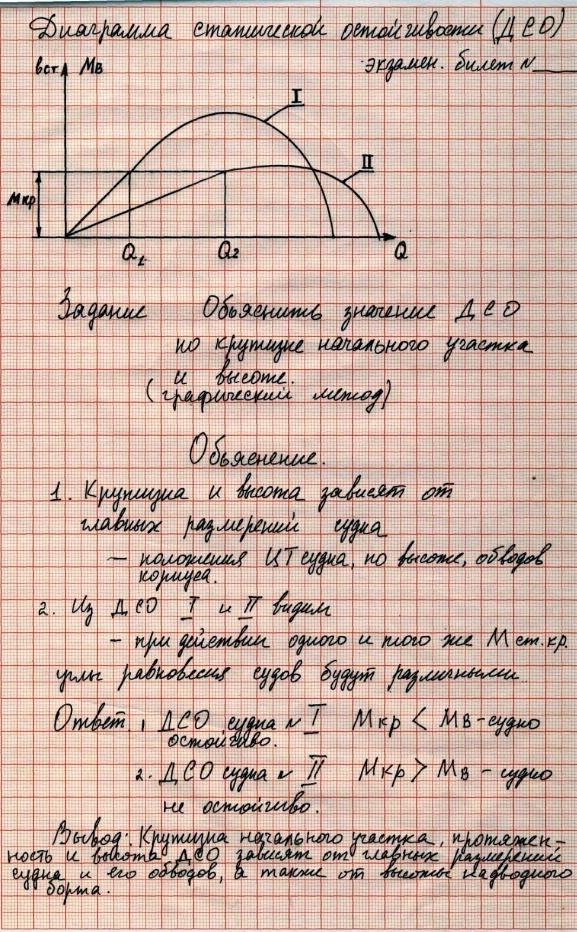 Диаграмма статической остойчивости (ДСО)
экзамен. билет N
вст Mв
I
II
Mкр
Q1 Q2 Q
Задание Обьяснить значение ДСО
по крутизне начального участка
и высоте.
(графический метод)
Обьяснение.
1. Крутизна и высота зависят от
главных размерений судна
– положения ЦТ судна, по высоте, обводов
корпуса.
2. Из ДСО I и II видим
– при действии одного и того же M ст. кр.
углы равновесия судов будут различными.
Ответ. 1 ДСО судна N I Mкр < Mв - судно
остойчиво.
2. ДСО судна N II Mкр > Mв - судно
не остойчиво.
Вывод: Крутизна начального участка, протяжен-
ность и высота ДСО зависят от главных размерений
судна и его обводов, а также от высоты надводного
борта.